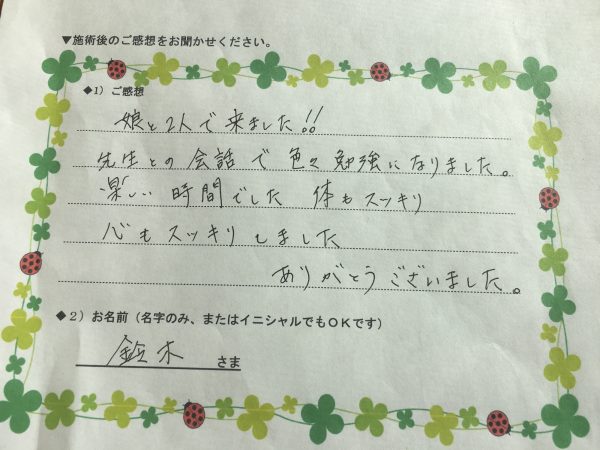 ▼施術後のご感想をお聞かせください。
◆1）ご感想
娘と2人で来ました!!
先生との会話で色々勉強になりました。
楽しい時間でした 体もスッキリ
心もスッキリしました
ありがとうございました。
◆2）お名前（名字のみ、またはイニシャルでもOKです）
鈴木 さま